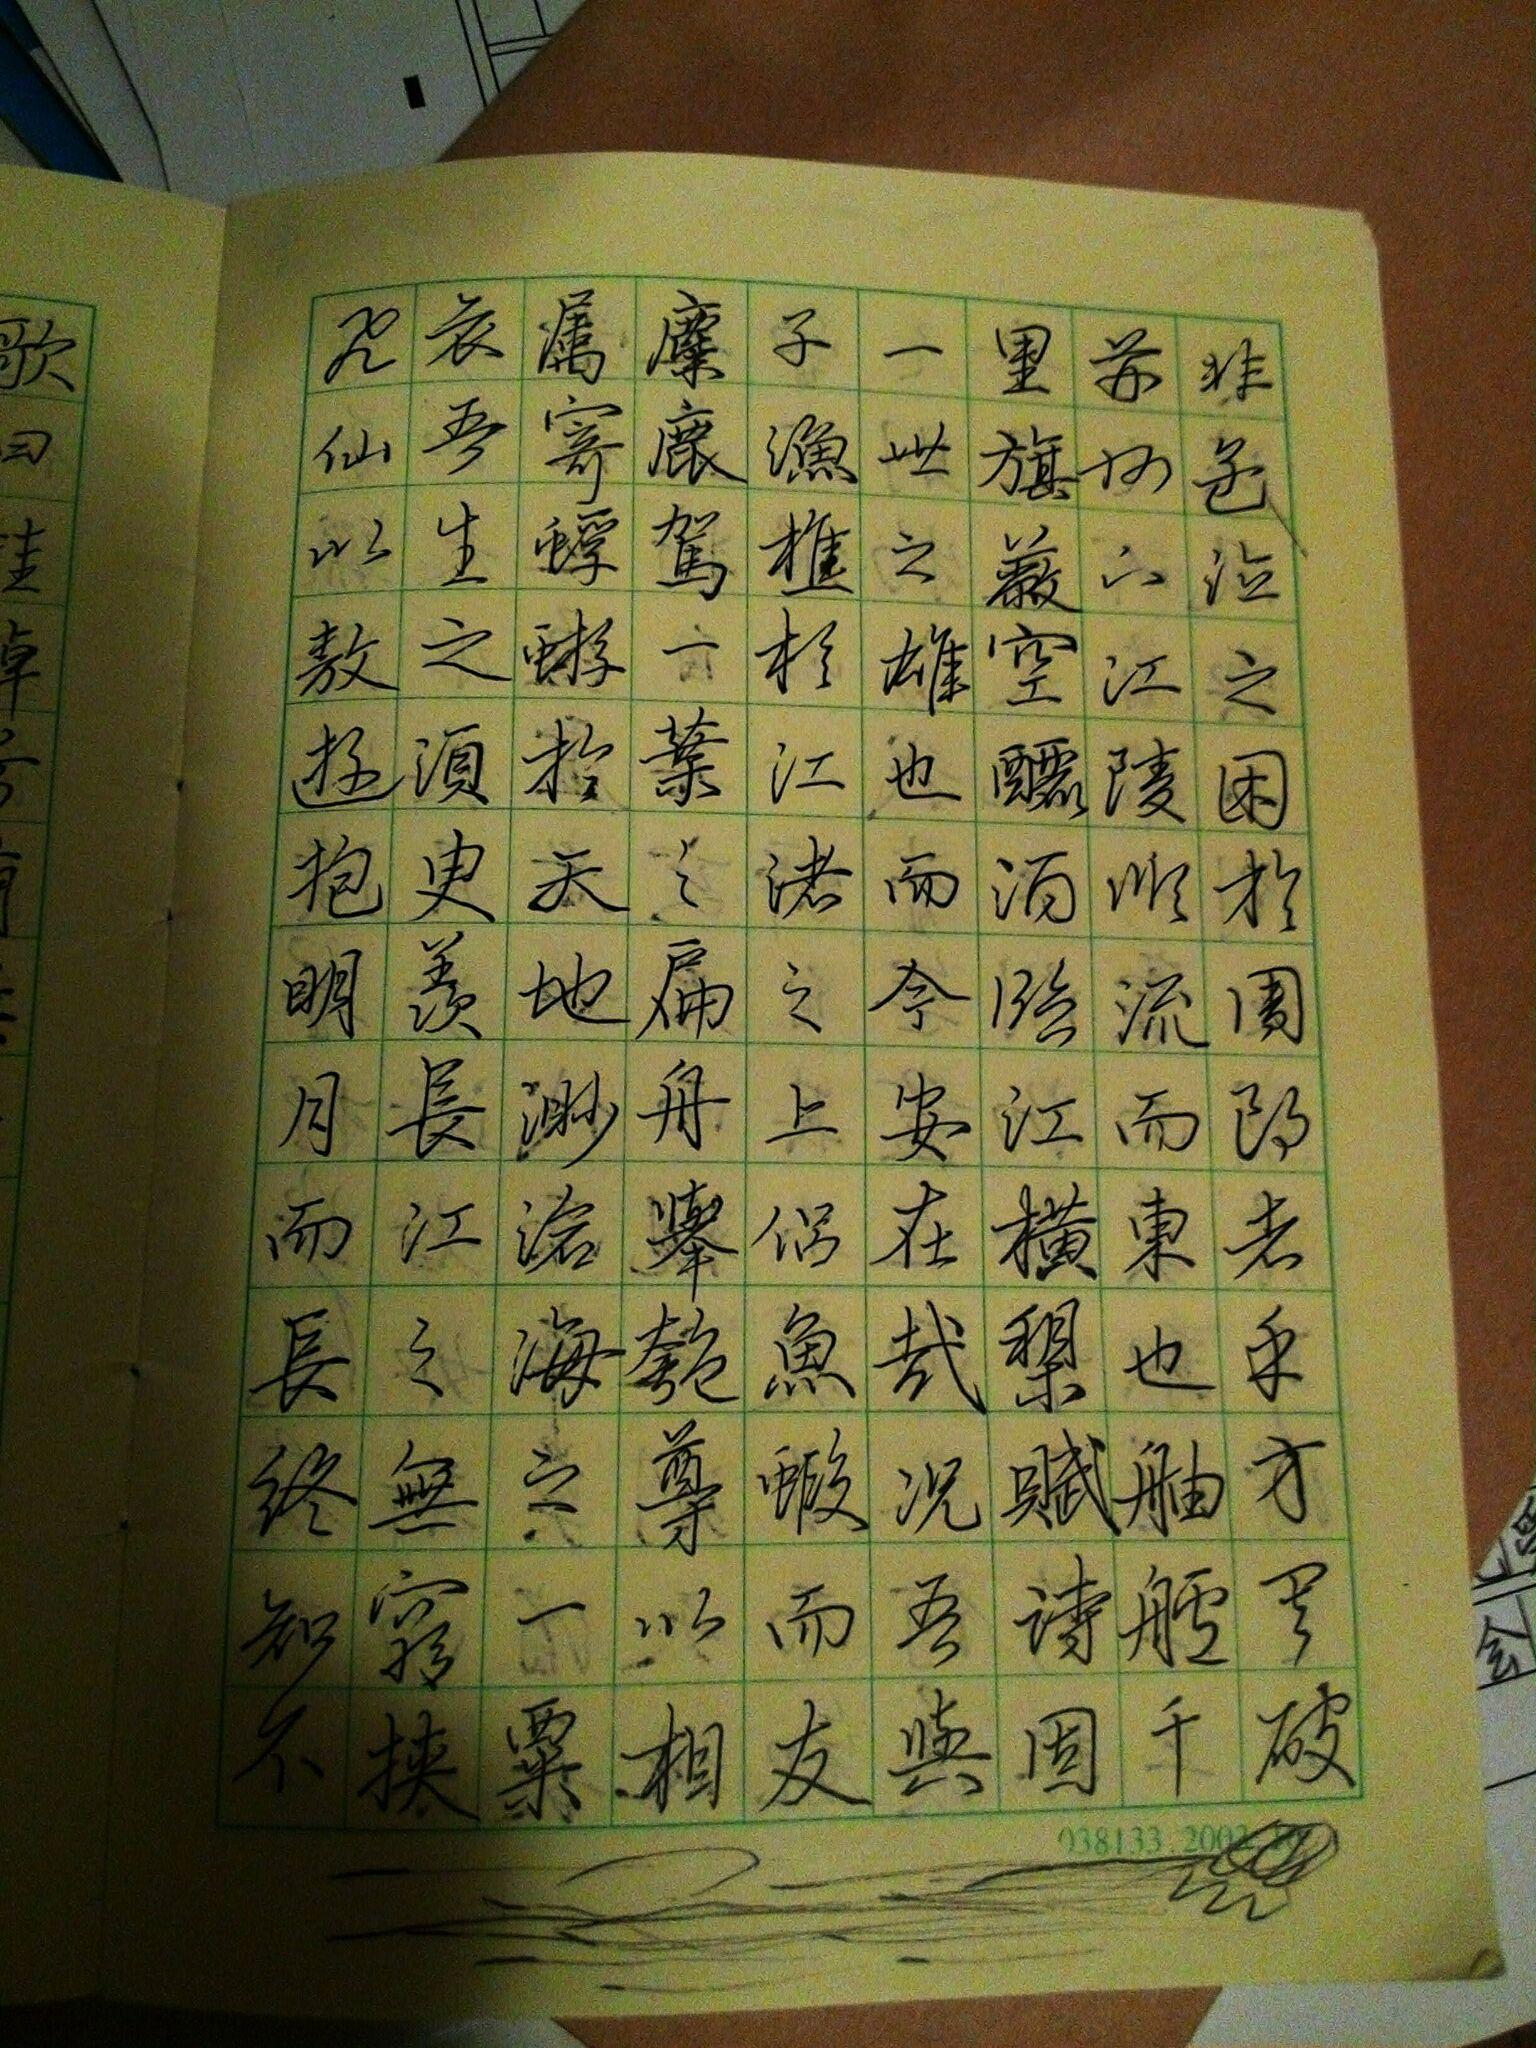 非孟德之困於周郎者乎方其破
荊州下江陵順流而東也舳艫千
里旗蔽空釃酒臨江橫槊賦詩固
一世之雄也而今安在哉況吾與
子漁樵於江渚之上侶魚蝦而友
麋鹿駕一葉之扁舟舉匏尊以相
屬寄蜉蝣於天地渺滄海之一粟
哀吾生之須臾羨長江之無窮挾
飛仙以敖遊抱明月而長終知不
歌曰